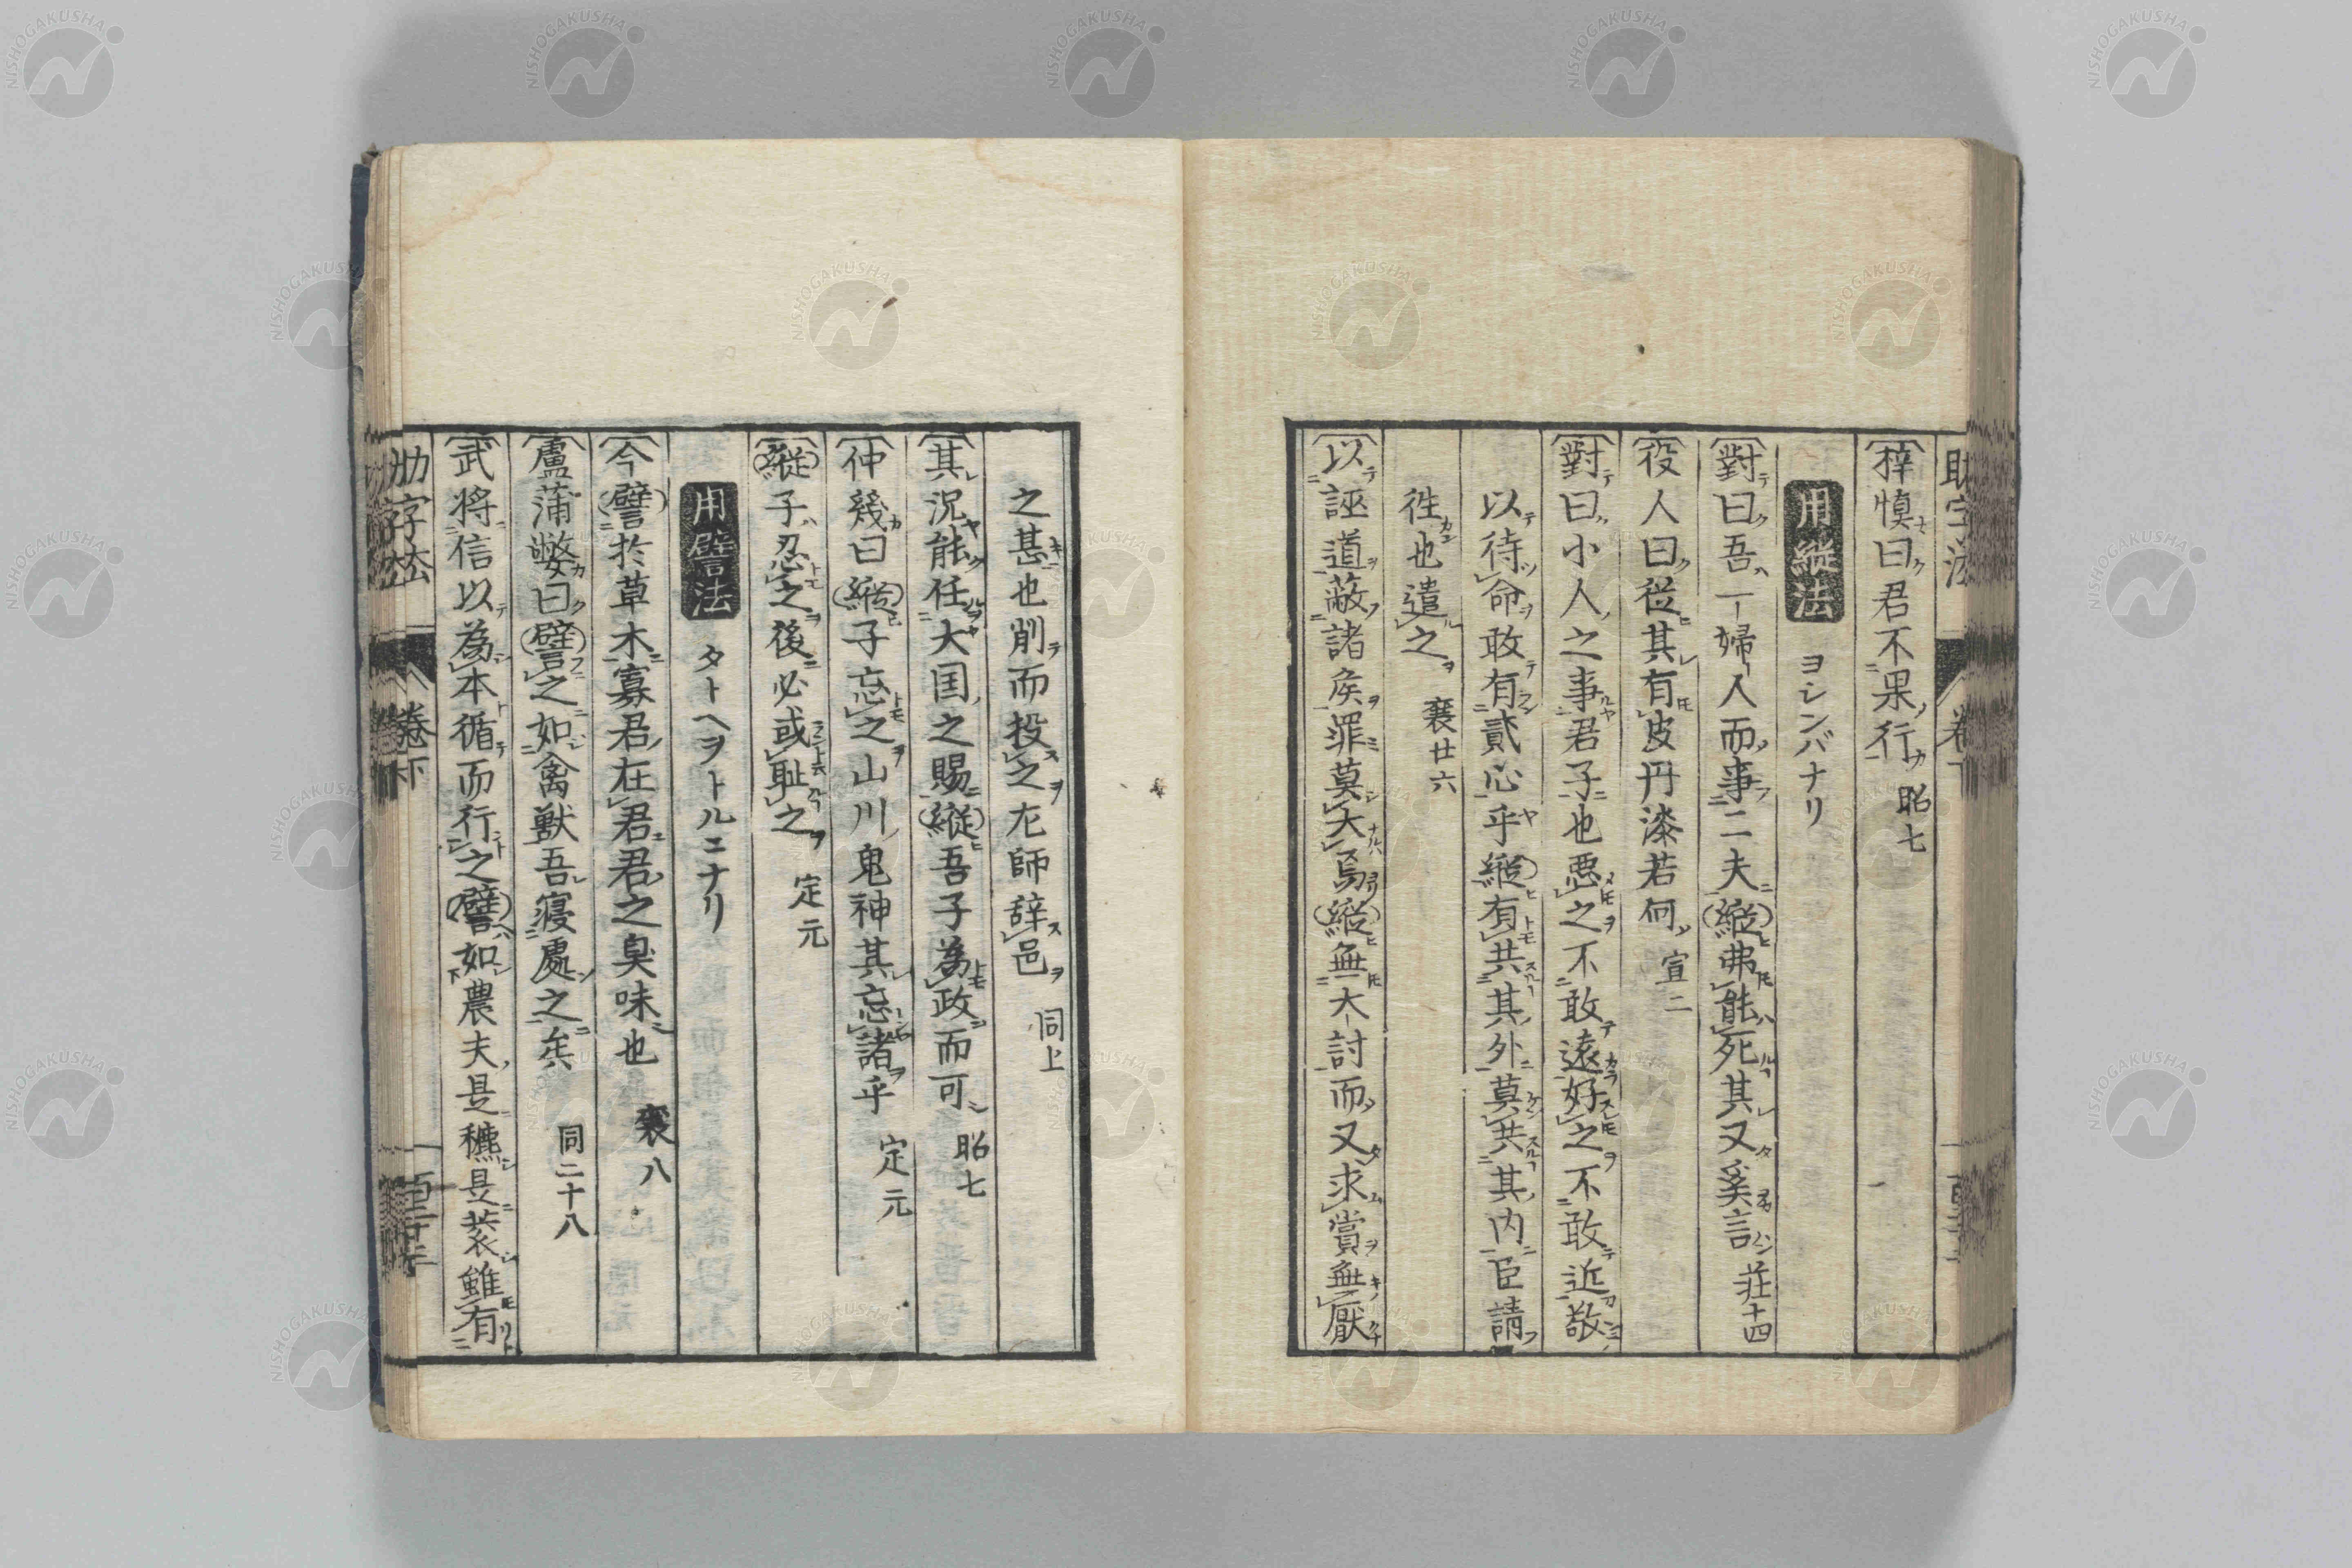 助字法 卷下
梓慎曰君不果行 昭七
用縱法 ヨシンバナリ
對曰吾一婦人而事二夫縱弗能死其又奚言 荘十四
役人曰從其有皮丹漆若何 宣二
對曰小人之事君子也惡之不敢遠好之不敢近敬
以待命敢有貳心乎縱有共其外莫共其内臣請
徃也遣之 襄廿六
以誣道蔽諸矦罪莫大焉縱無大討而又求賞無厭
之甚也削而投之左師辞邑 同上
其況能任大国之賜縱吾子為政而可 昭七
仲幾曰縱子忘之山川鬼神其忘諸乎 定元
縱子忍之後必或耻之 定元
用譬法 タトヘヲトルニナリ
今譬於草木寡君在君君之臭味也 襄八
盧蒲嫳曰譬之如禽獸吾寝處之矣 同二十八
武将信以為本循而行之譬如農夫是穮是蓘雖有
助字法 卷下
NISHOGAKUSHA